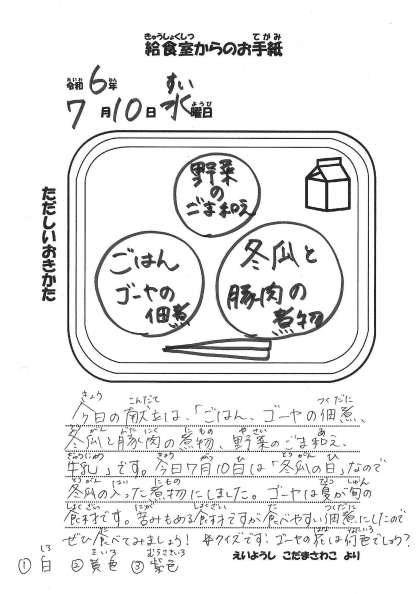 給食室からのお手紙
令和6年
7月10日水曜日
ただしいおきかた
野菜
の
ごま和え
ごはん
ゴーヤの
佃煮
冬瓜と
豚肉の
煮物
今日の献立は、「ごはん、ゴーヤの佃煮、
冬瓜と豚肉の煮物、野菜のごま和え、
牛乳」です。今日7月10日は「冬瓜の日」なので
冬瓜の入った煮物にしました。ゴーヤは夏が旬の
食材です。苦みもある食材ですが食べやすい佃煮にしたので
ぜひ食べてみましょう! #クイズです:ゴーヤの花は何色でしょう?
①白 ②黄色 ③紫色
えいようし こだまさわこ より